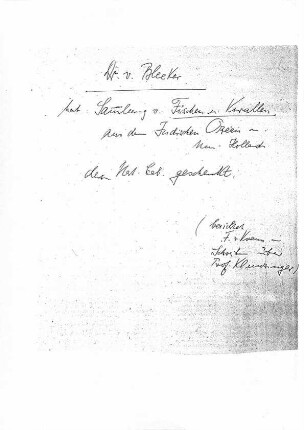 Dr. v. Bleeker
hat Sammlung v. Fischen u. Korallen
aus dem Indischen Ozean u.
Neu Holland
dem Nat. Cab. geschenkt.
(
F. v. Krauss
Prof. Klunzinger)